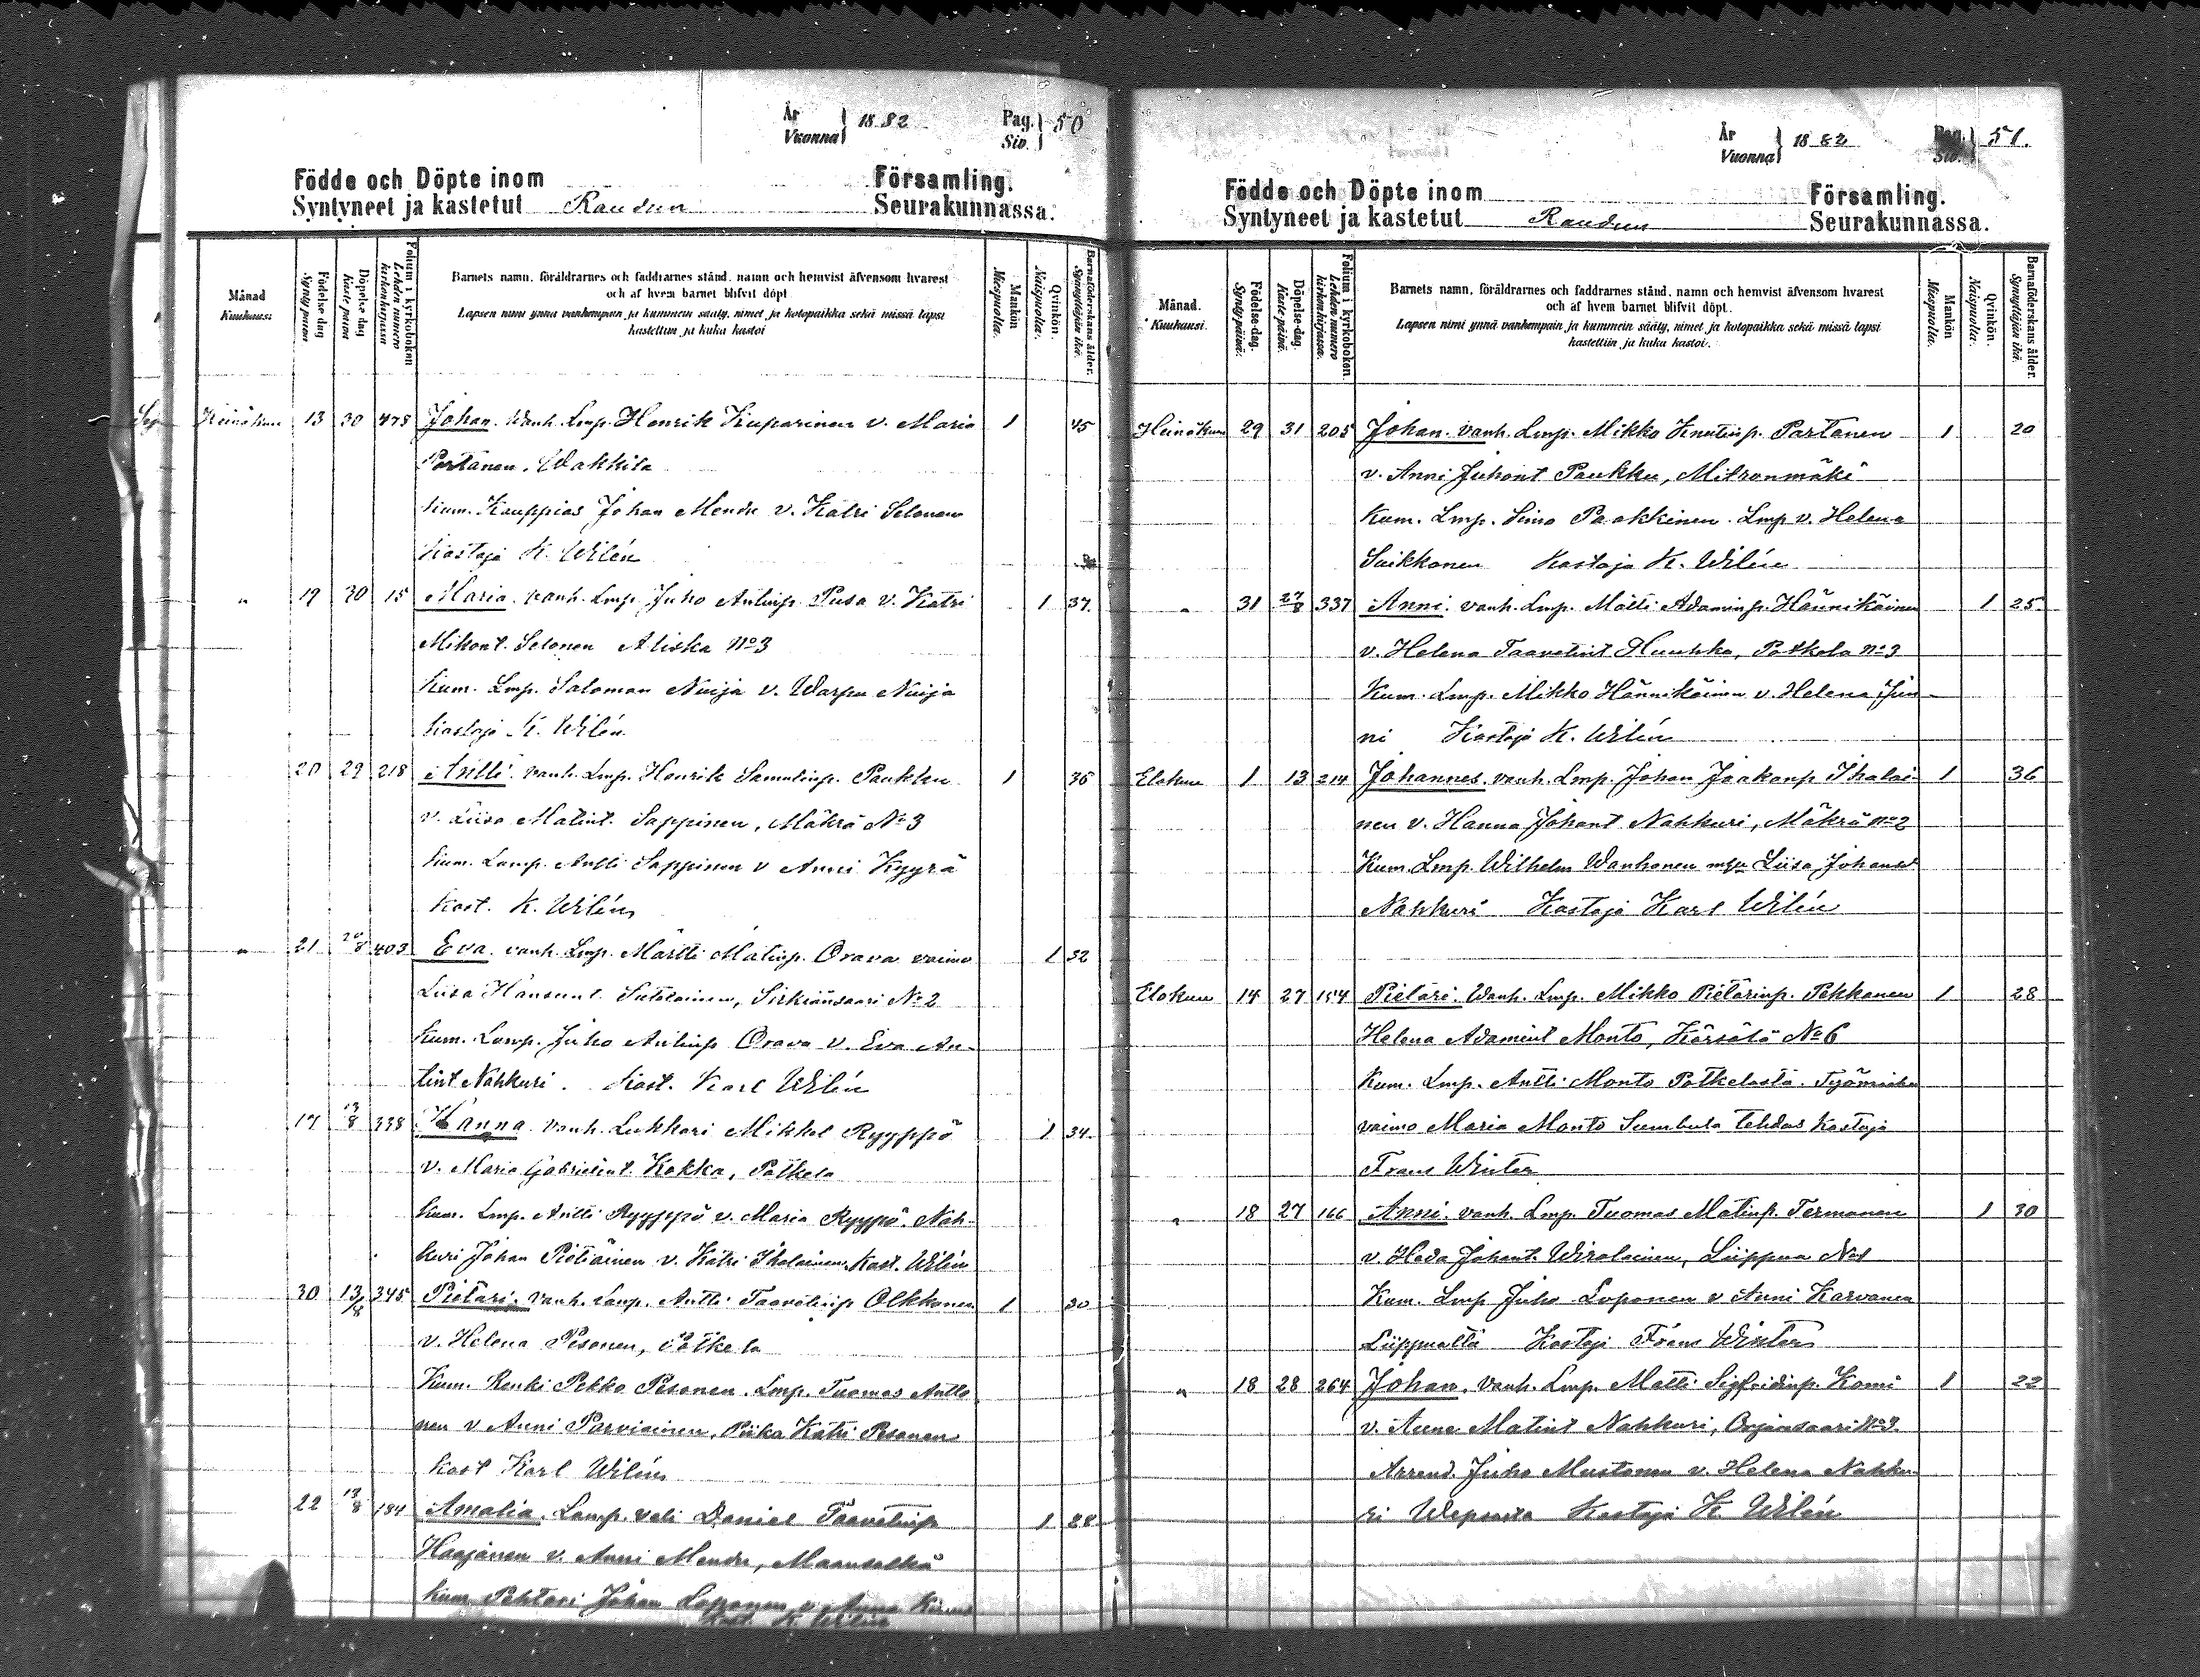 År
Vuonna 1882
Pag.
Siv. 50
Födde och Döpte inom Församling.
Syntyneet ja kastetut Raudun Seurakunnassa.
Månad
Kuukausi
Födelse dag
Synty päivä
Döpelse dag
Kaste päivä
Folium i kyrkoboken
Lehden numero kirkonkirjassa
Barnets namn, föräldrarnes och faddrarnes stånd, namn och hemvist äfvensom hvarest
och af hvem barnet blifvit döpt
Lapsen nimi ynnä vanhempain ja kummein sääty, nimet ja kotopaikka sekä missä lapsi
kastettiin ja kuka kastoi
Mankön
Miespuolia.
Qvinkön.
Naispuolia.
Barnaföderskans ålder.
Synnyttäjän ikä.
Heinäkuu 13 30 478 Johan. Vanh. Lmp. Henrik Kuparinen v. Maria 1 45
Partanen, Wakkila
Kum. Kauppias Johan Mendu v. Katri Selonen
Kastaja K. Wilén
" 19 30 15 Maria. vanh. Lmp. Juho Antinp. Pusa v. Katri 1 37
Mikont. Selonen Aliska No 3
Kum. Lmp. Salomon Nuija v. Warpu Nuija
Kastaja K. Wilén
20 29 218 Antti. vanh. Lmp. Henrik Samulinp. Paukku 1 36
v. Liisa Matint. Sappinen, Mäkrä No 3
Kum. Lamp. Antti Sappinen v Anni Kyyrä
Kast. K. Wilén
" 21 20/8 403 Eva. vanh. Lmp. Martti Matinp. Orava vaimo 1 32
Liisa Sutelainen, Sirkiänsaari No 2
Kum. Lamp. Juho Antinp Orava v. Eva An-
tint Nahkuri. Kast. Karl Wilén
17 13/8 338 Hanna vanh. Lukkari Mikkel Ryyppö 1 34
v. Maria Gabrielint. Kokka, Pölkelä
Kum. Lmp. Antti Ryyppö v. Maria Ryyppö. Nah-
kuri Johan Pietiäinen v. Katri Ihalainen. Kast. Wilén
30 13/8 345 Pietari. vanh. Lamp. Antti Taavetinp Olkkonen 1 30
v. Helena Pesonen, Pölkelä
Kum. Renki Pekko Pesonen. Lmp. Tuomas Antto
nen v Anni Parviainen, Piika Katri Pesonen
Kast Karl Wilén
22 13/8 184 Amalia. Lamp. veli Daniel Taavetinp 1 28
Haajanen v. Anni Mendu, Maanselkä
Kum Pehtori Johan Loponen v. Anna
Kast. K. Wilén
År
Vuonna 1882
Pag.
Siv. 51.
Födde och Döpte inom Församling.
Syntyneet ja kastetut Raudun Seurakunnassa.
Månad.
Kuukausi.
Födelse-dag.
Synty päivä.
Döpelse-dag.
Kaste päivä.
Folium i kyrkoboken
Lehden numero kirkonkirjassa.
Barnets namn, föräldrarnes och faddrarnes stånd, namn och hemvist äfvensom hvarest
och af hvem barnet blifvit döpt.
Lapsen nimi ynnä vanhempain ja kummein sääty, nimet ja kotopaikka sekä missä lapsi
kastettiin ja kuka kastoi.
Mankön
Miespuolia.
Qvinkön.
Naispuolia.
Barnaföderskans ålder.
Synnyttäjän ikä.
Heinäkuu 29 31 205 Johan. vanh. Lmp. Mikko Knutinp. Partanen 1 20
v. Anni Juhont Paukku, Mitronmäki
Kum. Lmp. Simo Paakkinen. Lmp v. Helena
Suikkonen Kastaja K. Wilén
" 31 27/8 337 Anni. vanh. Lmp. Matti Adaminp. Hännikäinen 1 25
v. Helena Taavetint Huuhka, Potkela No 3
Kum. Lmp. Mikko Hännikäinen v. Helena Jun-
ni Kastaja K. Wilén
Elokuu 1 13 214 Johannes. vanh. Lmp. Johan Jaakonp Ihalai- 1 36
nen v. Hanna Johant Nahkuri, Mäkrä No 2
Kum. Lmp. Wilhelm Wanhanen Liisa Johanst
Nahkuri Kastaja Karl Wilén
Elokuu 14 27 154 Pietari. Wanh. Lmp. Mikko Pietarinp. Pekkanen 1 28
Helena Adamint Monto, Kärsälä No 6
Kum. Lmp. Antti Monto Potkelasta. Työmiehen
vaimo Maria Monto Sumbula tehdas Kastaja
Frans Winter
" 18 27 166 Anni. vanh. Lmp. Tuomas Matinp. Termonen 1 30
v. Heda Johant. Wirolainen, Liippua No 1
Kum. Lmp Juho Loponen v Anni Karvanen
Liippualta Kastaja Frans Winter
" 18 28 264 Johan, vanh. Lmp. Matti Sigfridinp. Komi 1 22
v. Anna Matint Nahkuri, Orjansaari No 3.
Arrend. Juho Mustonen v. Helena Nahku
ri Wepsasta Kastaja K. Wilén